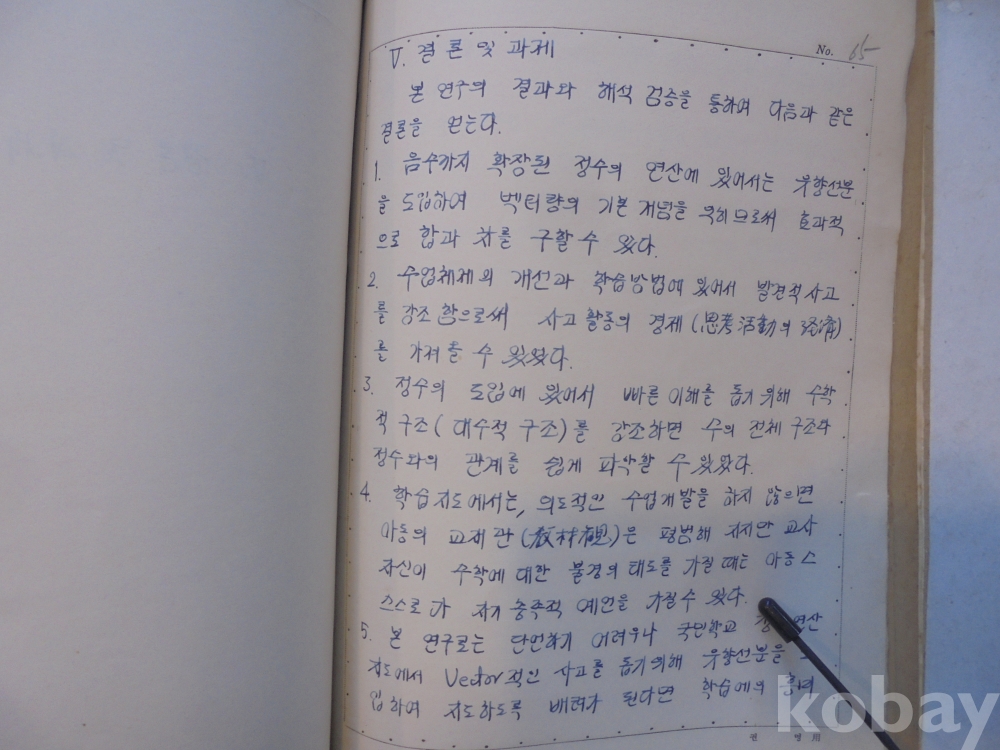 No. 65
Ⅴ. 결론 및 과제
본 연구의 결과와 해석 검증을 통하여 다음과 같은
결론을 얻는다.
1. 음수까지 확장된 정수의 연산에 있어서는 유향선분
을 도입하여 벡터량의 기본 개념을 익히므로써 효과적
으로 합과 차를 구할 수 있다.
2. 수업체제의 개선과 학습방법에 있어서 발견적 사고
를 강조함으로써 사고 활동의 경제 (思考活動의 経済)
를 가져 올 수 있었다.
3. 정수의 도입에 있어서 빠른 이해를 돕기 위해 수학
적 구조 (대수적 구조)를 강조하면 수의 전체 구조와
정수와의 관계를 쉽게 파악할 수 있었다.
4. 학습지도에서는, 의도적인 수업개발을 하지 않으면
아동의 교재관 (教材観)은 평범해 지지만 교사
자신이 수학에 대한 불경의 태도를 가질 때는 아동 스
스스로가 자기 충족적 예언을 가질 수 있다.
5. 본 연구로는 단언하기 어려우나 국민학교 연산
지도에서 Vector적인 사고를 돕기 위해 유향선분을
입하여 지도하도록 배려가 된다면 학습에의
kobay